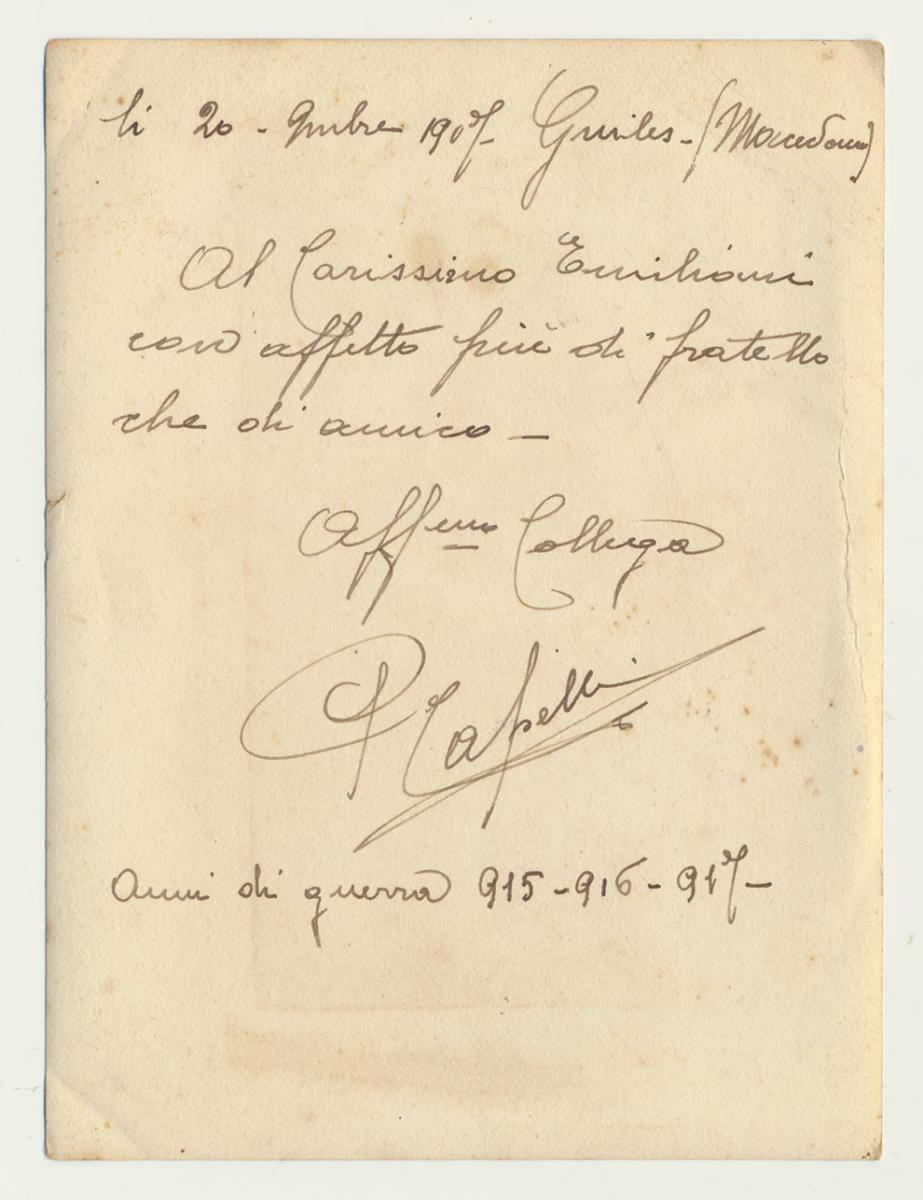 li 20 - 9mbre 1917- Gniles - (Macedonia)
Al Carissimo Emiliani
con affetto più di fratello
che di amico -
Aff.mo Collega
P Capelli
Anni di guerra 915-916-917-